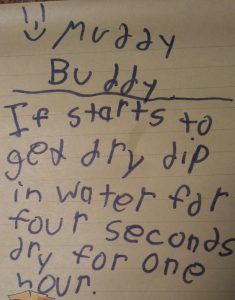 Muddy
Buddy
If starts to
get dry dip
in water for
four seconds
dry for one
hour.